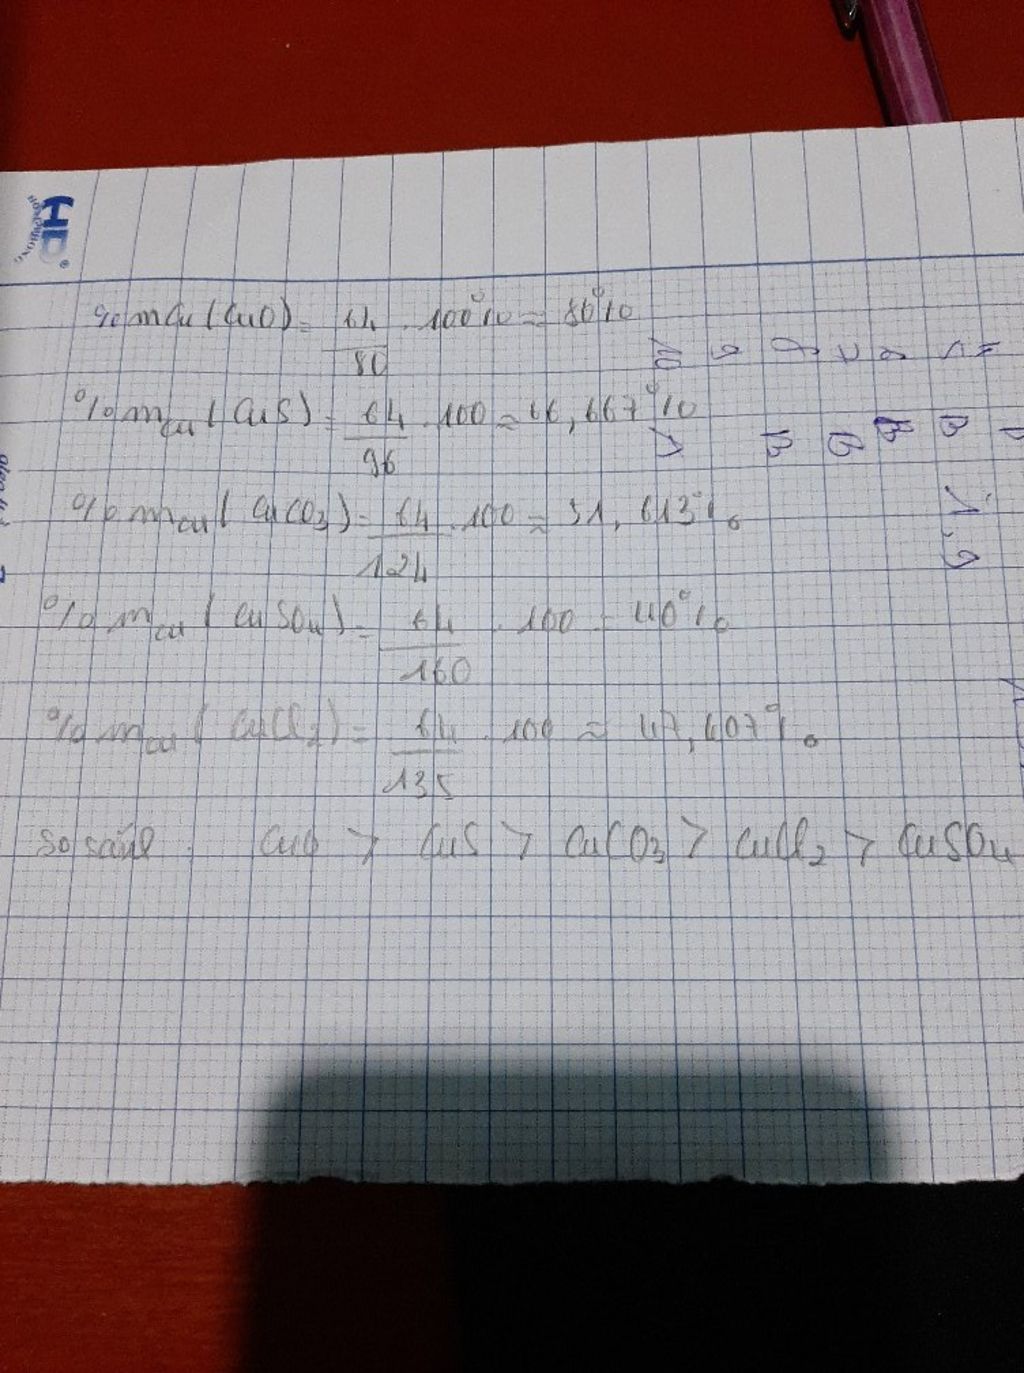 HD
%mCu (CuO) = 64/80 . 100% = 80%
%mCu (CuS) = 64/96 . 100 ≈ 66,667%
%mCu (CuCO3) = 64/124 . 100 ≈ 51,613%
%mCu (CuSO4) = 64/160 . 100 = 40%
%mCu (CuCl2) = 64/135 . 100 ≈ 47,407%
So sánh CuO > CuS > CuCO3 > CuCl2 > CuSO4